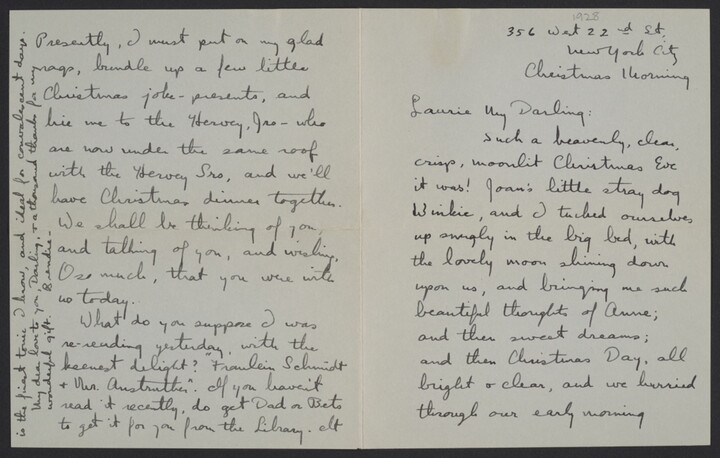 1928
356 West 22nd St.
New York City
Christmas Morning
Laurie My Darling:
Such a heavenly, clear,
crisp, moonlit Christmas Eve
it was! Joan's little stray dog
Winkie, and I tucked ourselves
up snugly in the big bed, with
the lovely moon shining down
upon us, and bringing me such
beautiful thoughts of Anne;
and then sweet dreams;
and then Christmas Day, all
bright & clear, and we hurried
through our early morning
Presently, I must put on my glad
rags, bundle up a few little
Christmas joke-presents, and
hie me to the Hervey, Jrs - who
are now under the same roof
with the Hervey Srs, and we'll
have Christmas dinner together.
We shall be thinking of you,
and talking of you, and wishing,
O so much, that you were with
us today.
What do you suppose I was
re-reading yesterday, with the
keenest delight? "Fraulein Schmidt
& Mr. Anstruther". If you haven't
read it recently, do get Dad or Bets
to get it for you from the Library. It
is the finest tonic I know, and ideal for convalescent days.
My dear love to you, Darling, & a thousand thanks for my
wonderful gift.